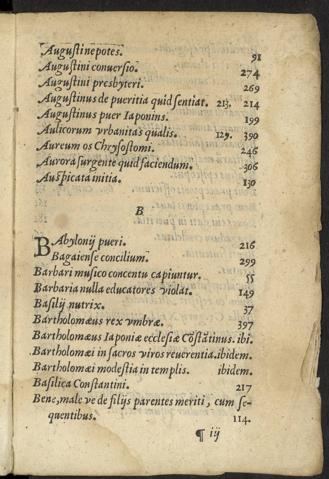 Augusti nepotes. 91
Augustini conuersio. 274
Augustini presbyteri. 269
Augustinus de pueritia quid sentiat. 213. 214
Augustinus puer Iaponius. 199
Aulicorum vrbanitas qualis. 129. 390
Aureum os Chrysostomi. 246
Aurora surgente quid faciendum. 306
Auspicata initia. 130
B
BAbylonij pueri. 216
Bagaiense concilium. 299
Barbari musico concentu capiuntur. 55
Barbaria nulla educatores violat. 149
Basilij nutrix. 37
Bartholomæus rex vmbræ. 397
Bartholomæus Iaponiæ ecclesiæ Cõstãtinus. ibi.
Bartholomæi in sacros viros reuerentia. ibidem.
Bartholomæi modestia in templis. ibidem.
Basilica Constantini. 217
Bene, male ve de filijs parentes meriti, cum se-
quentibus. 114.
¶ ij